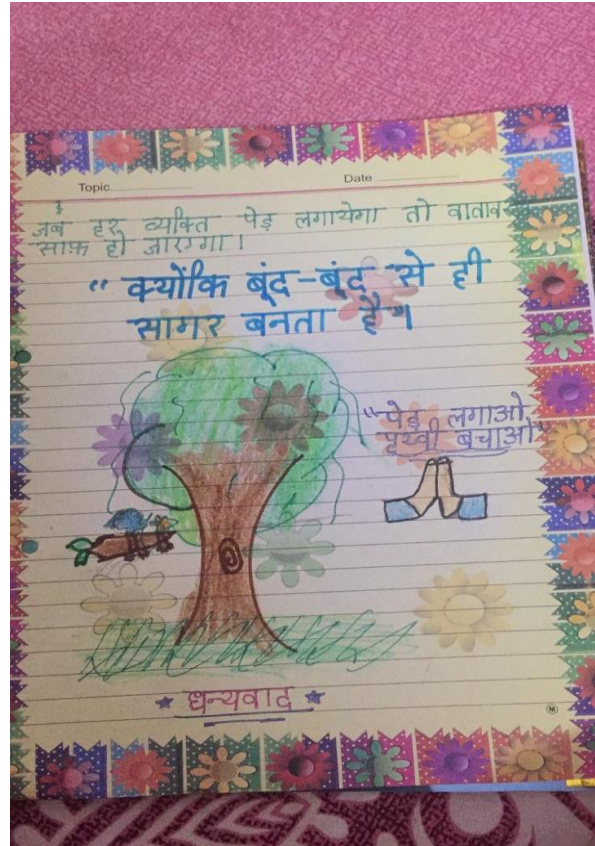 Topic Date
जब हर व्यक्ति पेड़ लगायेगा तो
साफ़ हो जाएगा।
" क्योंकि बूंद-बूंद से ही
सागर बनता है"।
"पेड़ लगाओ,
पृथ्वी बचाओ"
धन्यवाद